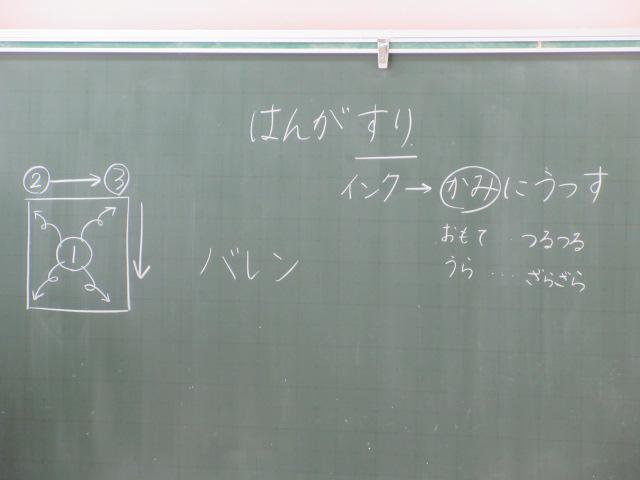 はんがすり
インク→かみにうつす
おもて…つるつる
うら…ざらざら
②→③
①
バレン